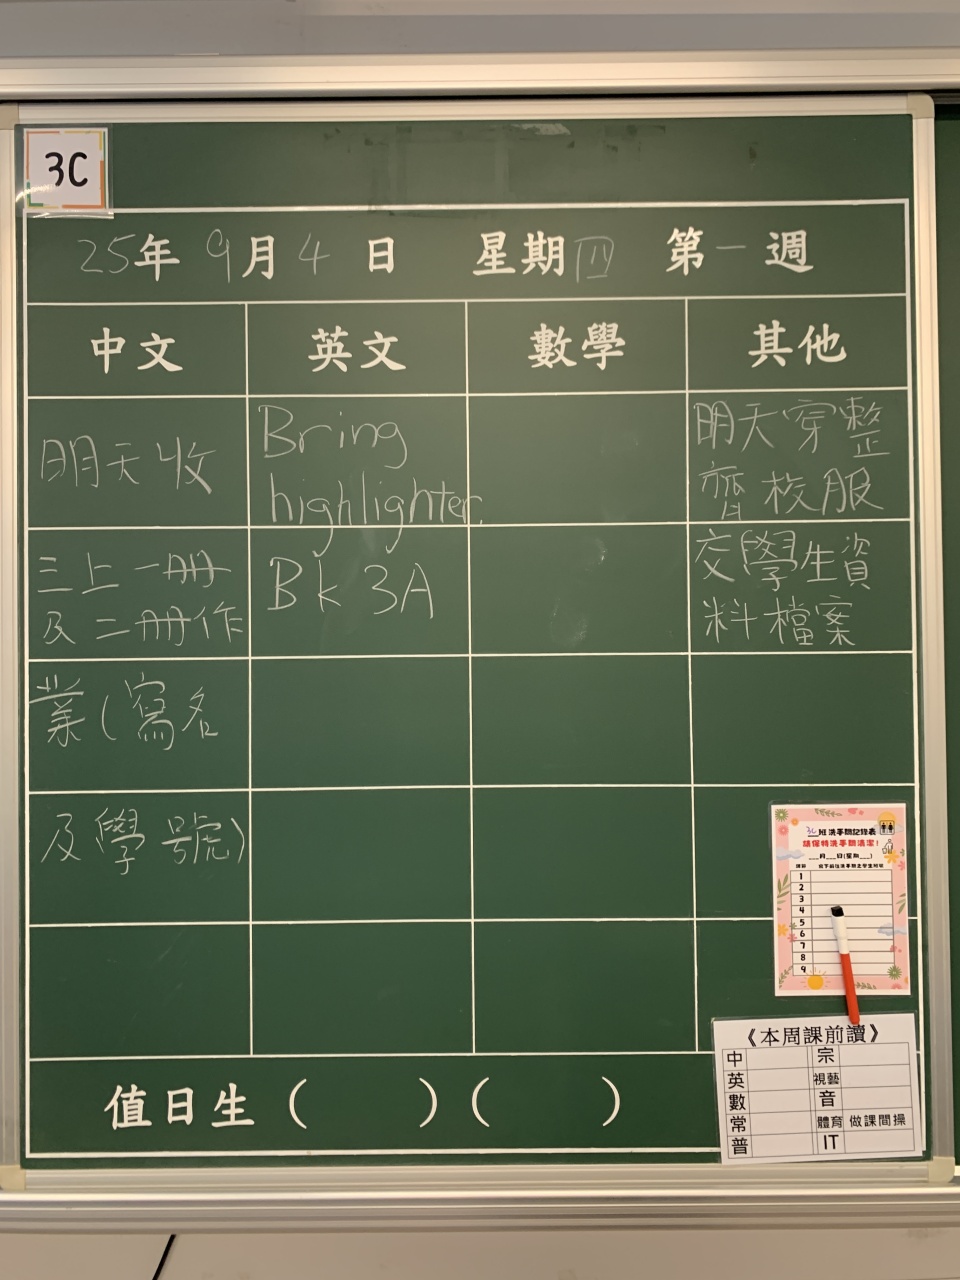 3C
25年 9月 4日 星期四 第一週
中文 英文 數學 其他
明天收
三上一冊
及二冊作
業(寫名
及學號)
Bring
highlighter.
Bk 3A
明天穿整
齊校服
交學生資
料檔案
3C班洗手間記錄表
請保持洗手間清潔!
___月___日(星期___)
1
2
3
4
5
6
7
8
9
《本周課前讀》
中 宗
英 視藝
數 音
常 體育 做課間操
普 IT
值日生 ( ) ( )